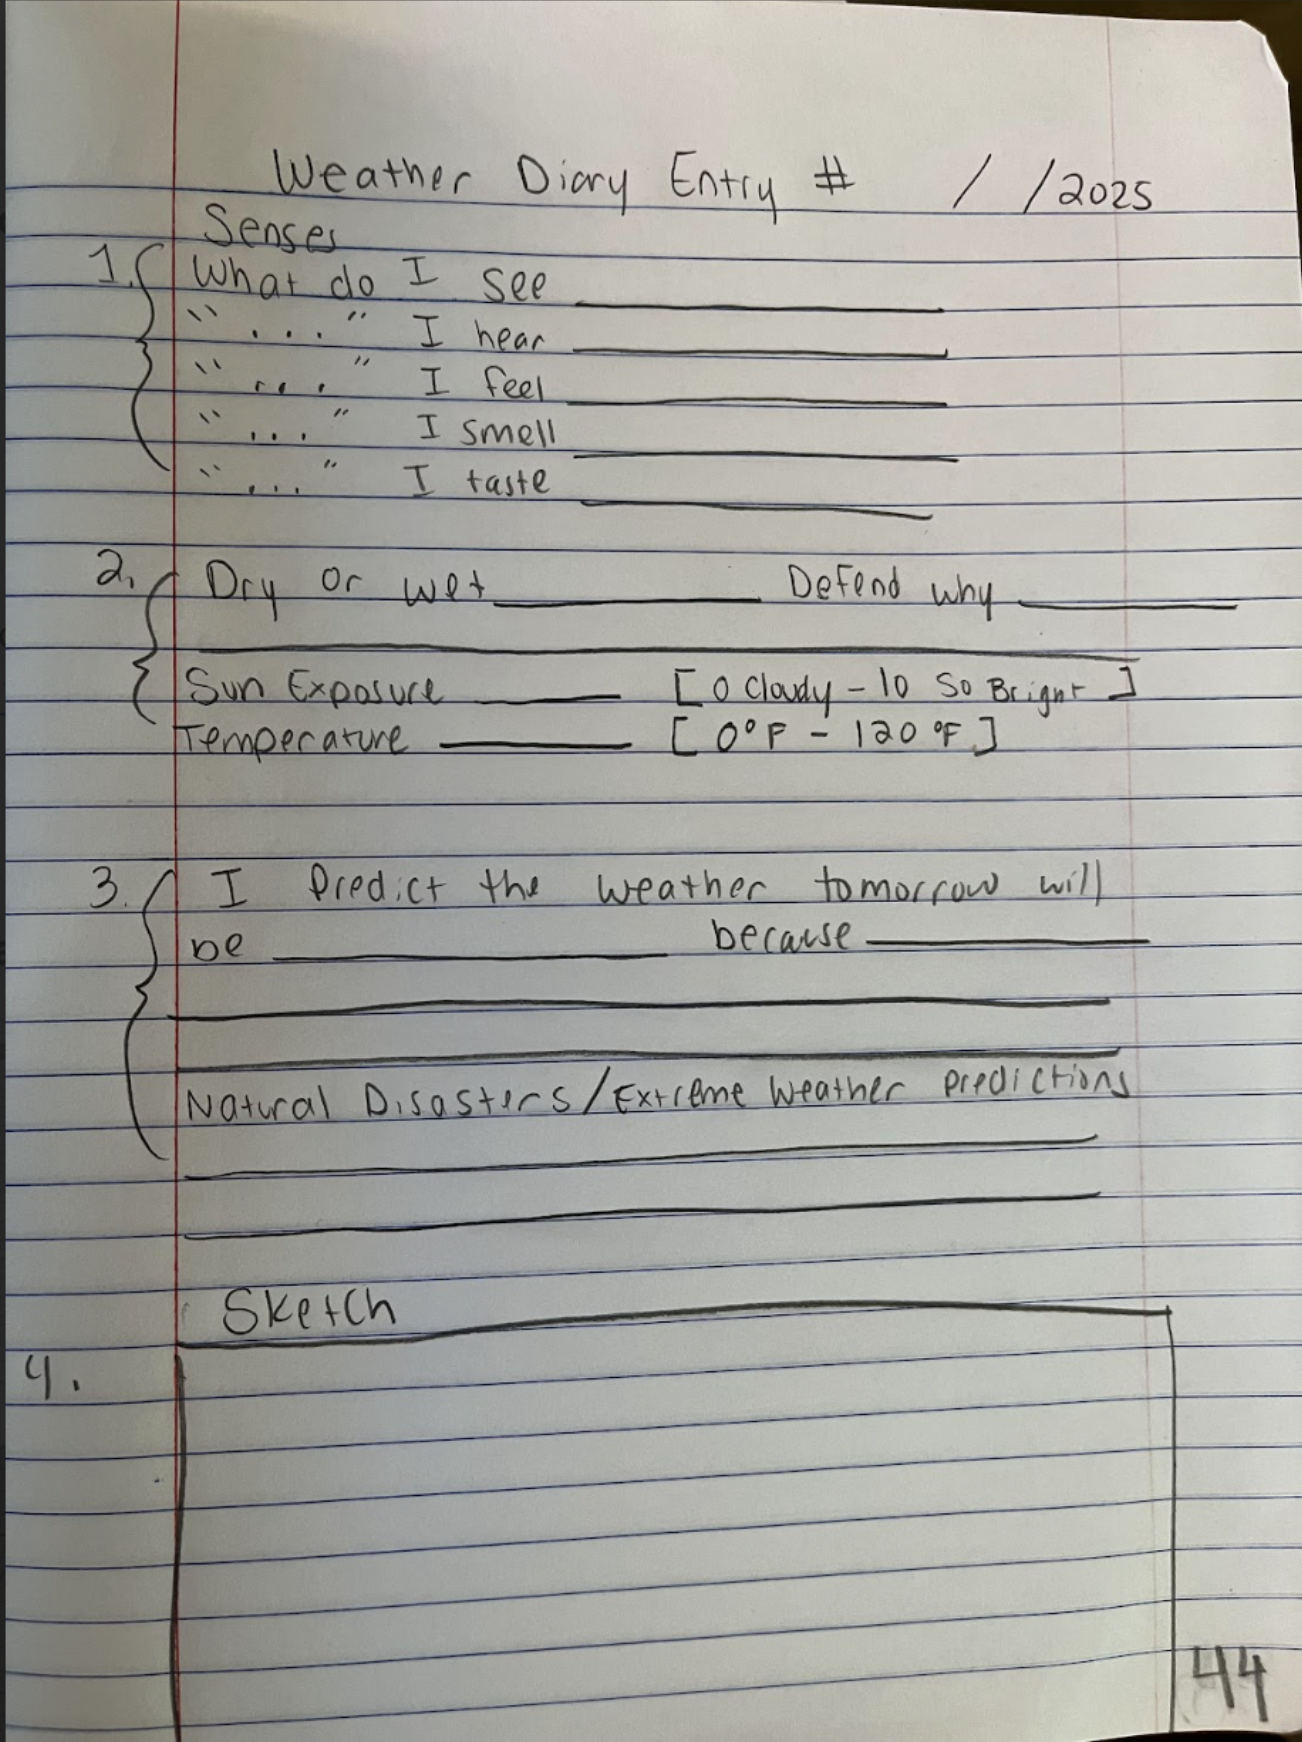 Weather Diary Entry # / /2025
Senses
1. What do I see
" ... " I hear
" ... " I feel
" ... " I smell
" ... " I taste
2. Dry or wet Defend why
Sun Exposure [0 Cloudy - 10 So Bright]
Temperature [0°F - 120°F]
3. I Predict the weather tomorrow will
be because
Natural Disasters/Extreme Weather predictions
Sketch
4.
44